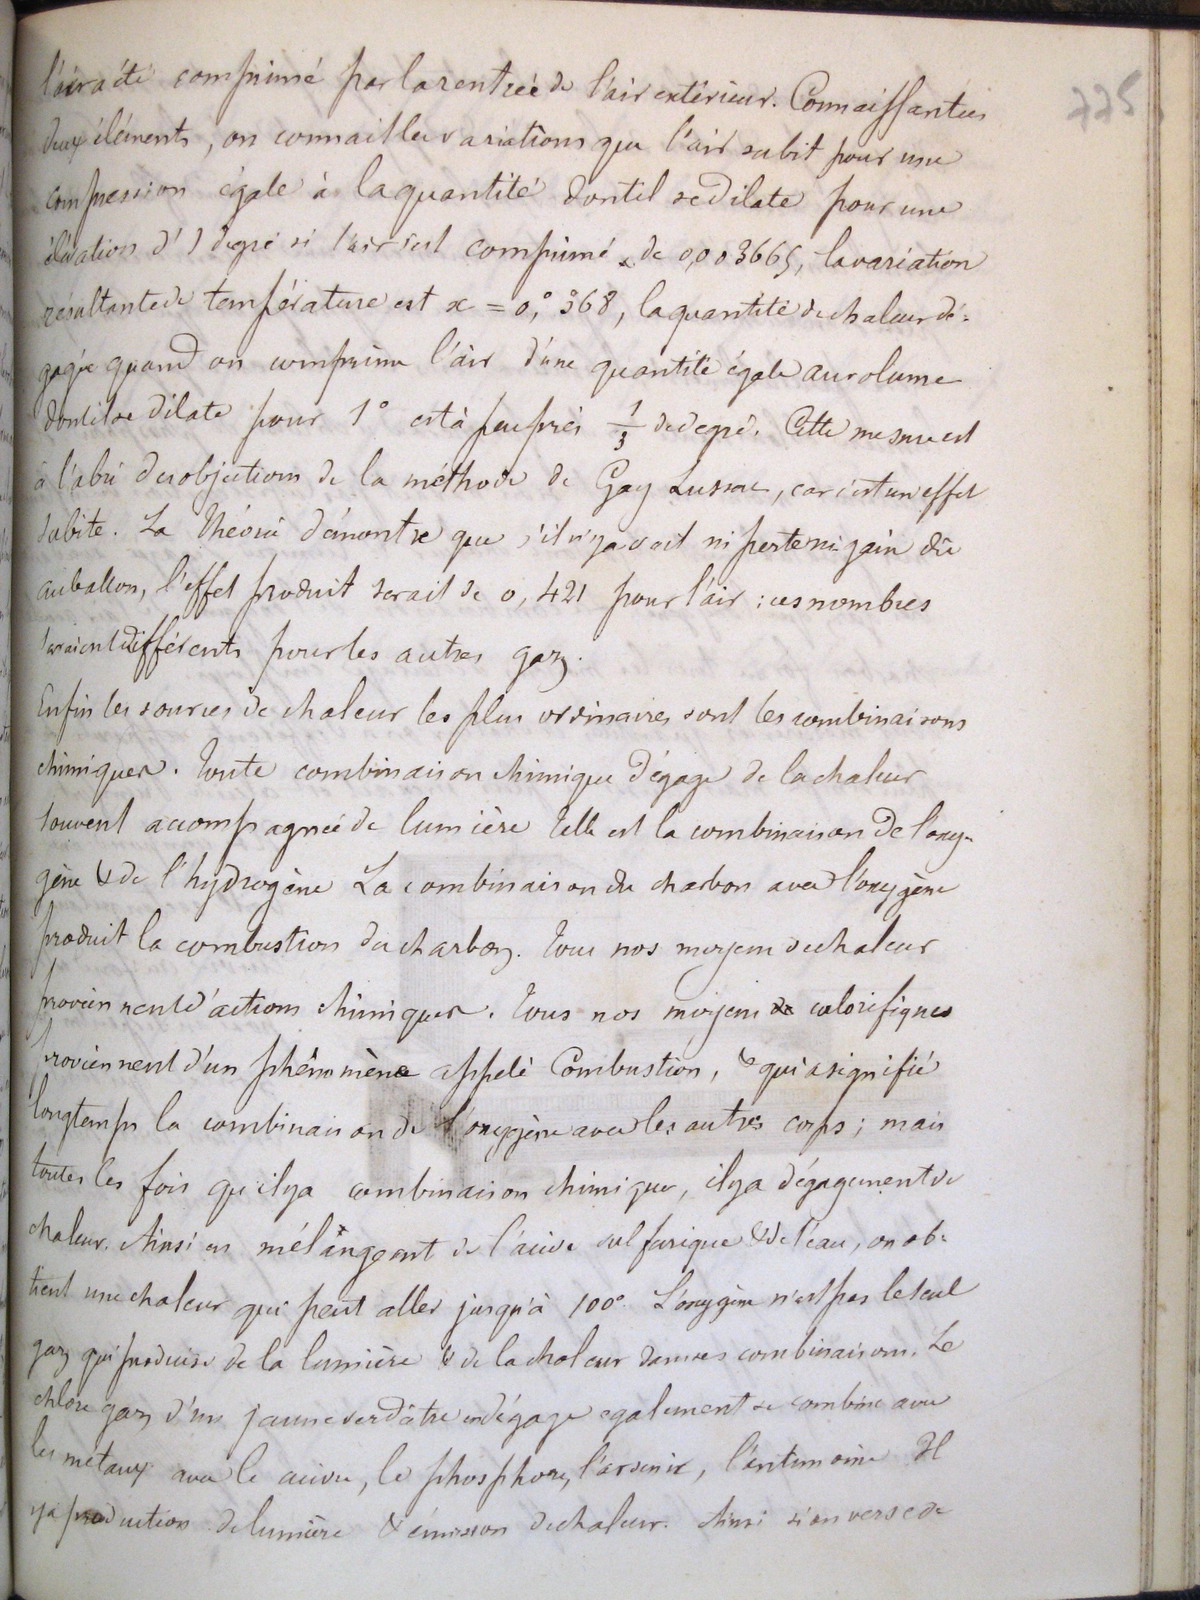 225
l'air a été comprimé par la rentrée de l'air extérieur. Connaissant ces
deux éléments, on connait les variations que l'air subit pour une
compression égale à la quantité dont il se dilate pour une
élévation d'1 degré si l'air est comprimé de 0,003665, la variation
résultante de température est x = 0,°368, la quantité de chaleur dé-
gagée quand on comprime l'air d'une quantité égale au volume
dont il se dilate pour 1° est à peu près 1/3 de degré. Cette mesure est
à l'abri des objections de la méthode de Gay Lussac, car c'est un effet
subite. La théorie démontre que s'il n'y avait ni perte ni gain dû
au ballon, l'effet produit serait de 0,421 pour l'air : ces nombres
seraient différents pour les autres gaz.
Enfin les sources de chaleur les plus ordinaires sont les combinaisons
chimiques. Toute combinaison chimique dégage de la chaleur
souvent accompagnée de lumière Telle est la combinaison de l'oxy-
gène & de l'hydrogène La combinaison du charbon avec l'oxygène
produit la combustion du charbon. Tous nos moyens de chaleur
proviennent d'actions chimiques. Tous nos moyens de calorifiques
proviennent d'un phénomène appelé Combustion, & qui a signifié
longtemps la combinaison de l'oxygène avec les autres corps ; mais
toutes les fois qu'il y a combinaison chimique, il y a dégagement de
chaleur. Ainsi en mélangeant de l'acide sulfurique & de l'eau, on ob-
tient une chaleur qui peut aller jusqu'à 100°. L'oxygène n'est pas le seul
gaz qui produise de la lumière & de la chaleur dans ses combinaisons. Le
chlore gaz d'un jaune verdâtre en dégage egalement se combine avec
les métaux avec le cuivre, le phosphore, l'arsenic, l'antimoine Il
y a production de lumière & émission de chaleur. Ainsi si on verse de